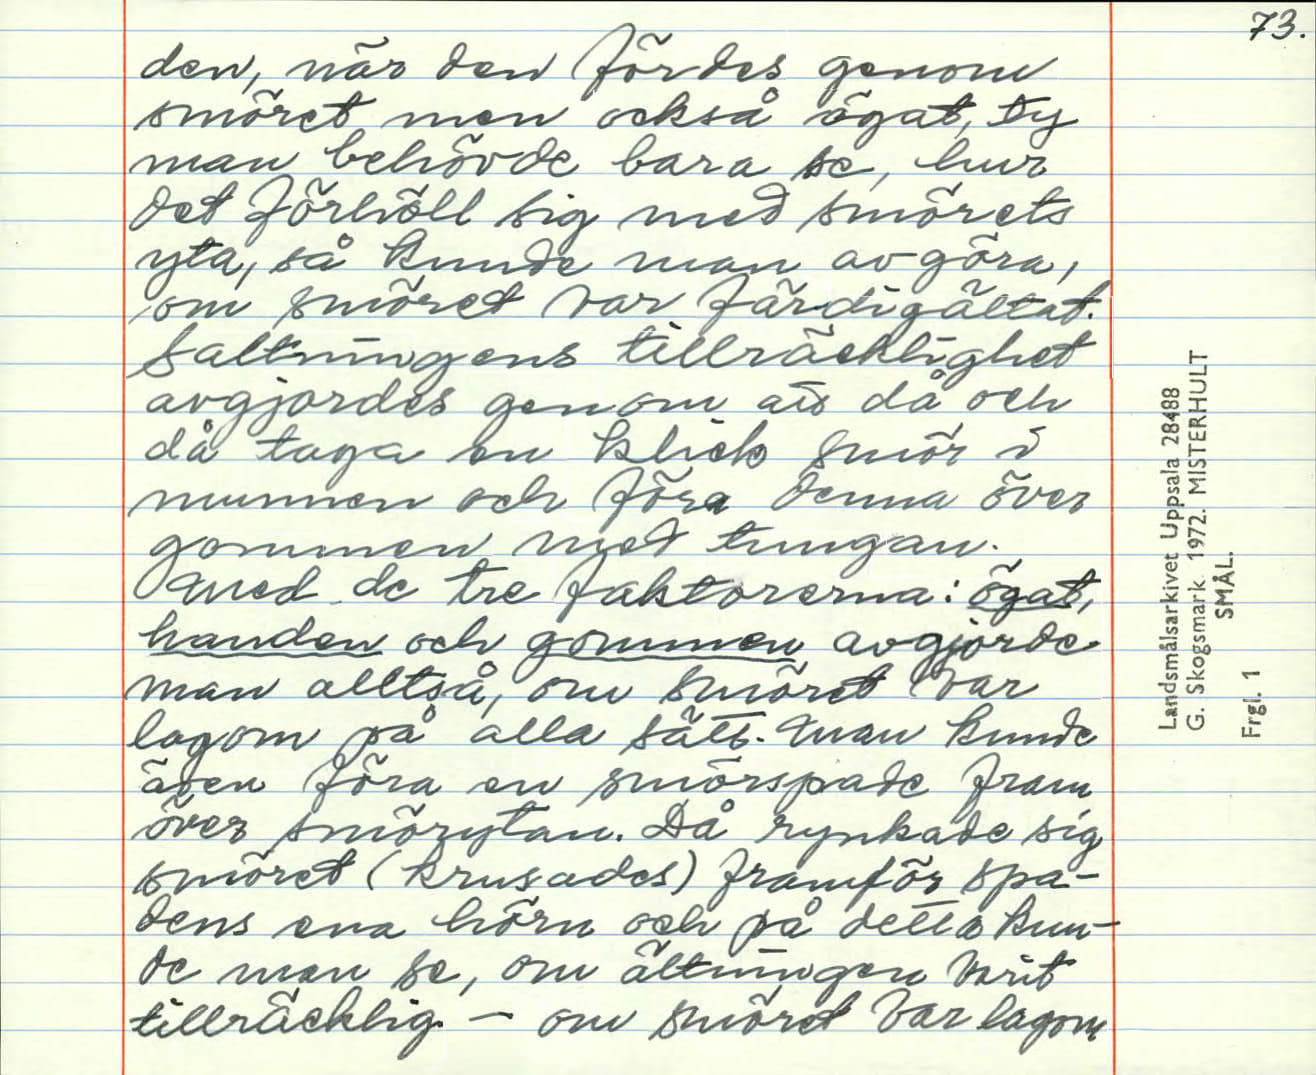 73.
den, när den fördes genom
smöret men också ögat, ty
man behövde bara se, hur
det förhöll sig med smörets
yta, så kunde man avgöra,
om smöret var färdigältat.
Saltningens tillräcklighet
avgjordes genom att då och
då taga en klick smör i
munnen och föra denna över
gommen med tungan.
Med de tre faktorerna: ögat,
handen och gommen avgjorde
man alltså, om smöret var
lagom på alla sätt. Man kunde
även föra en smörspade fram
över smörytan. Då rynkade sig
smöret (krusades) framför spa-
dens ena hörn och på detta kun-
de man se, om ältningen varit
tillräcklig. – om smöret var lagom
Landsmålsarkivet Uppsala 28488
G. Skogsmark. 1972. MISTERHULT
SMÅL.
Frgl. 1